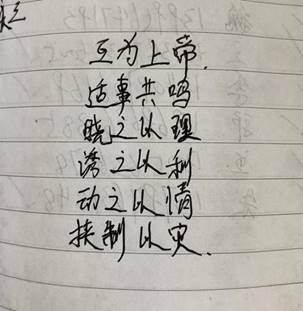 互为上帝.
适事共吗
晓之以理
诱之以利
动之以情
挟制以灾.